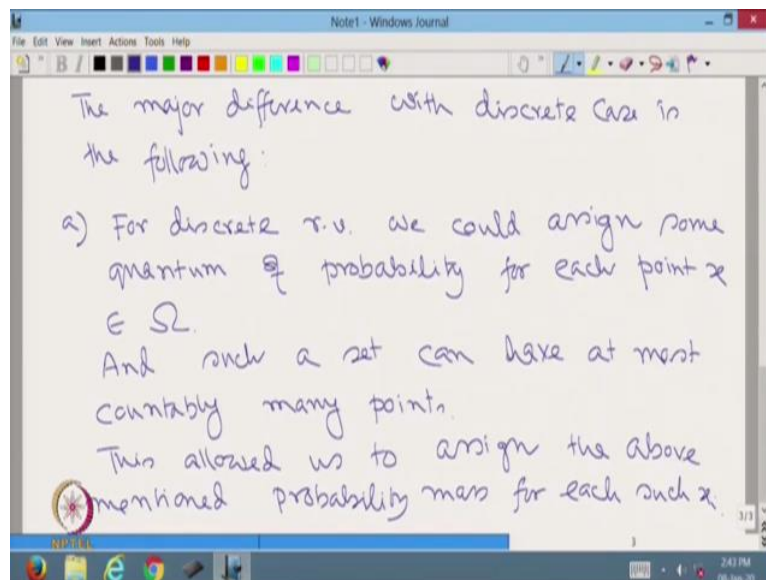 Note1 - Windows Journal
File Edit View Insert Actions Tools Help
B I
The major difference with discrete case is
the following:
a) For discrete r.v. we could assign some
quantum of probability for each point x
∈ Ω.
And such a set can have at most
countably many points.
This allowed us to assign the above
mentioned probability mass for each such x.
3/3
NPTEL
3
2:43 PM